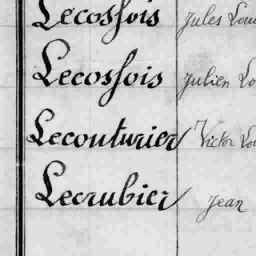 Lecossois Jules
Lecossois Julien
Lecouturier Victor
Lecrubier Jean